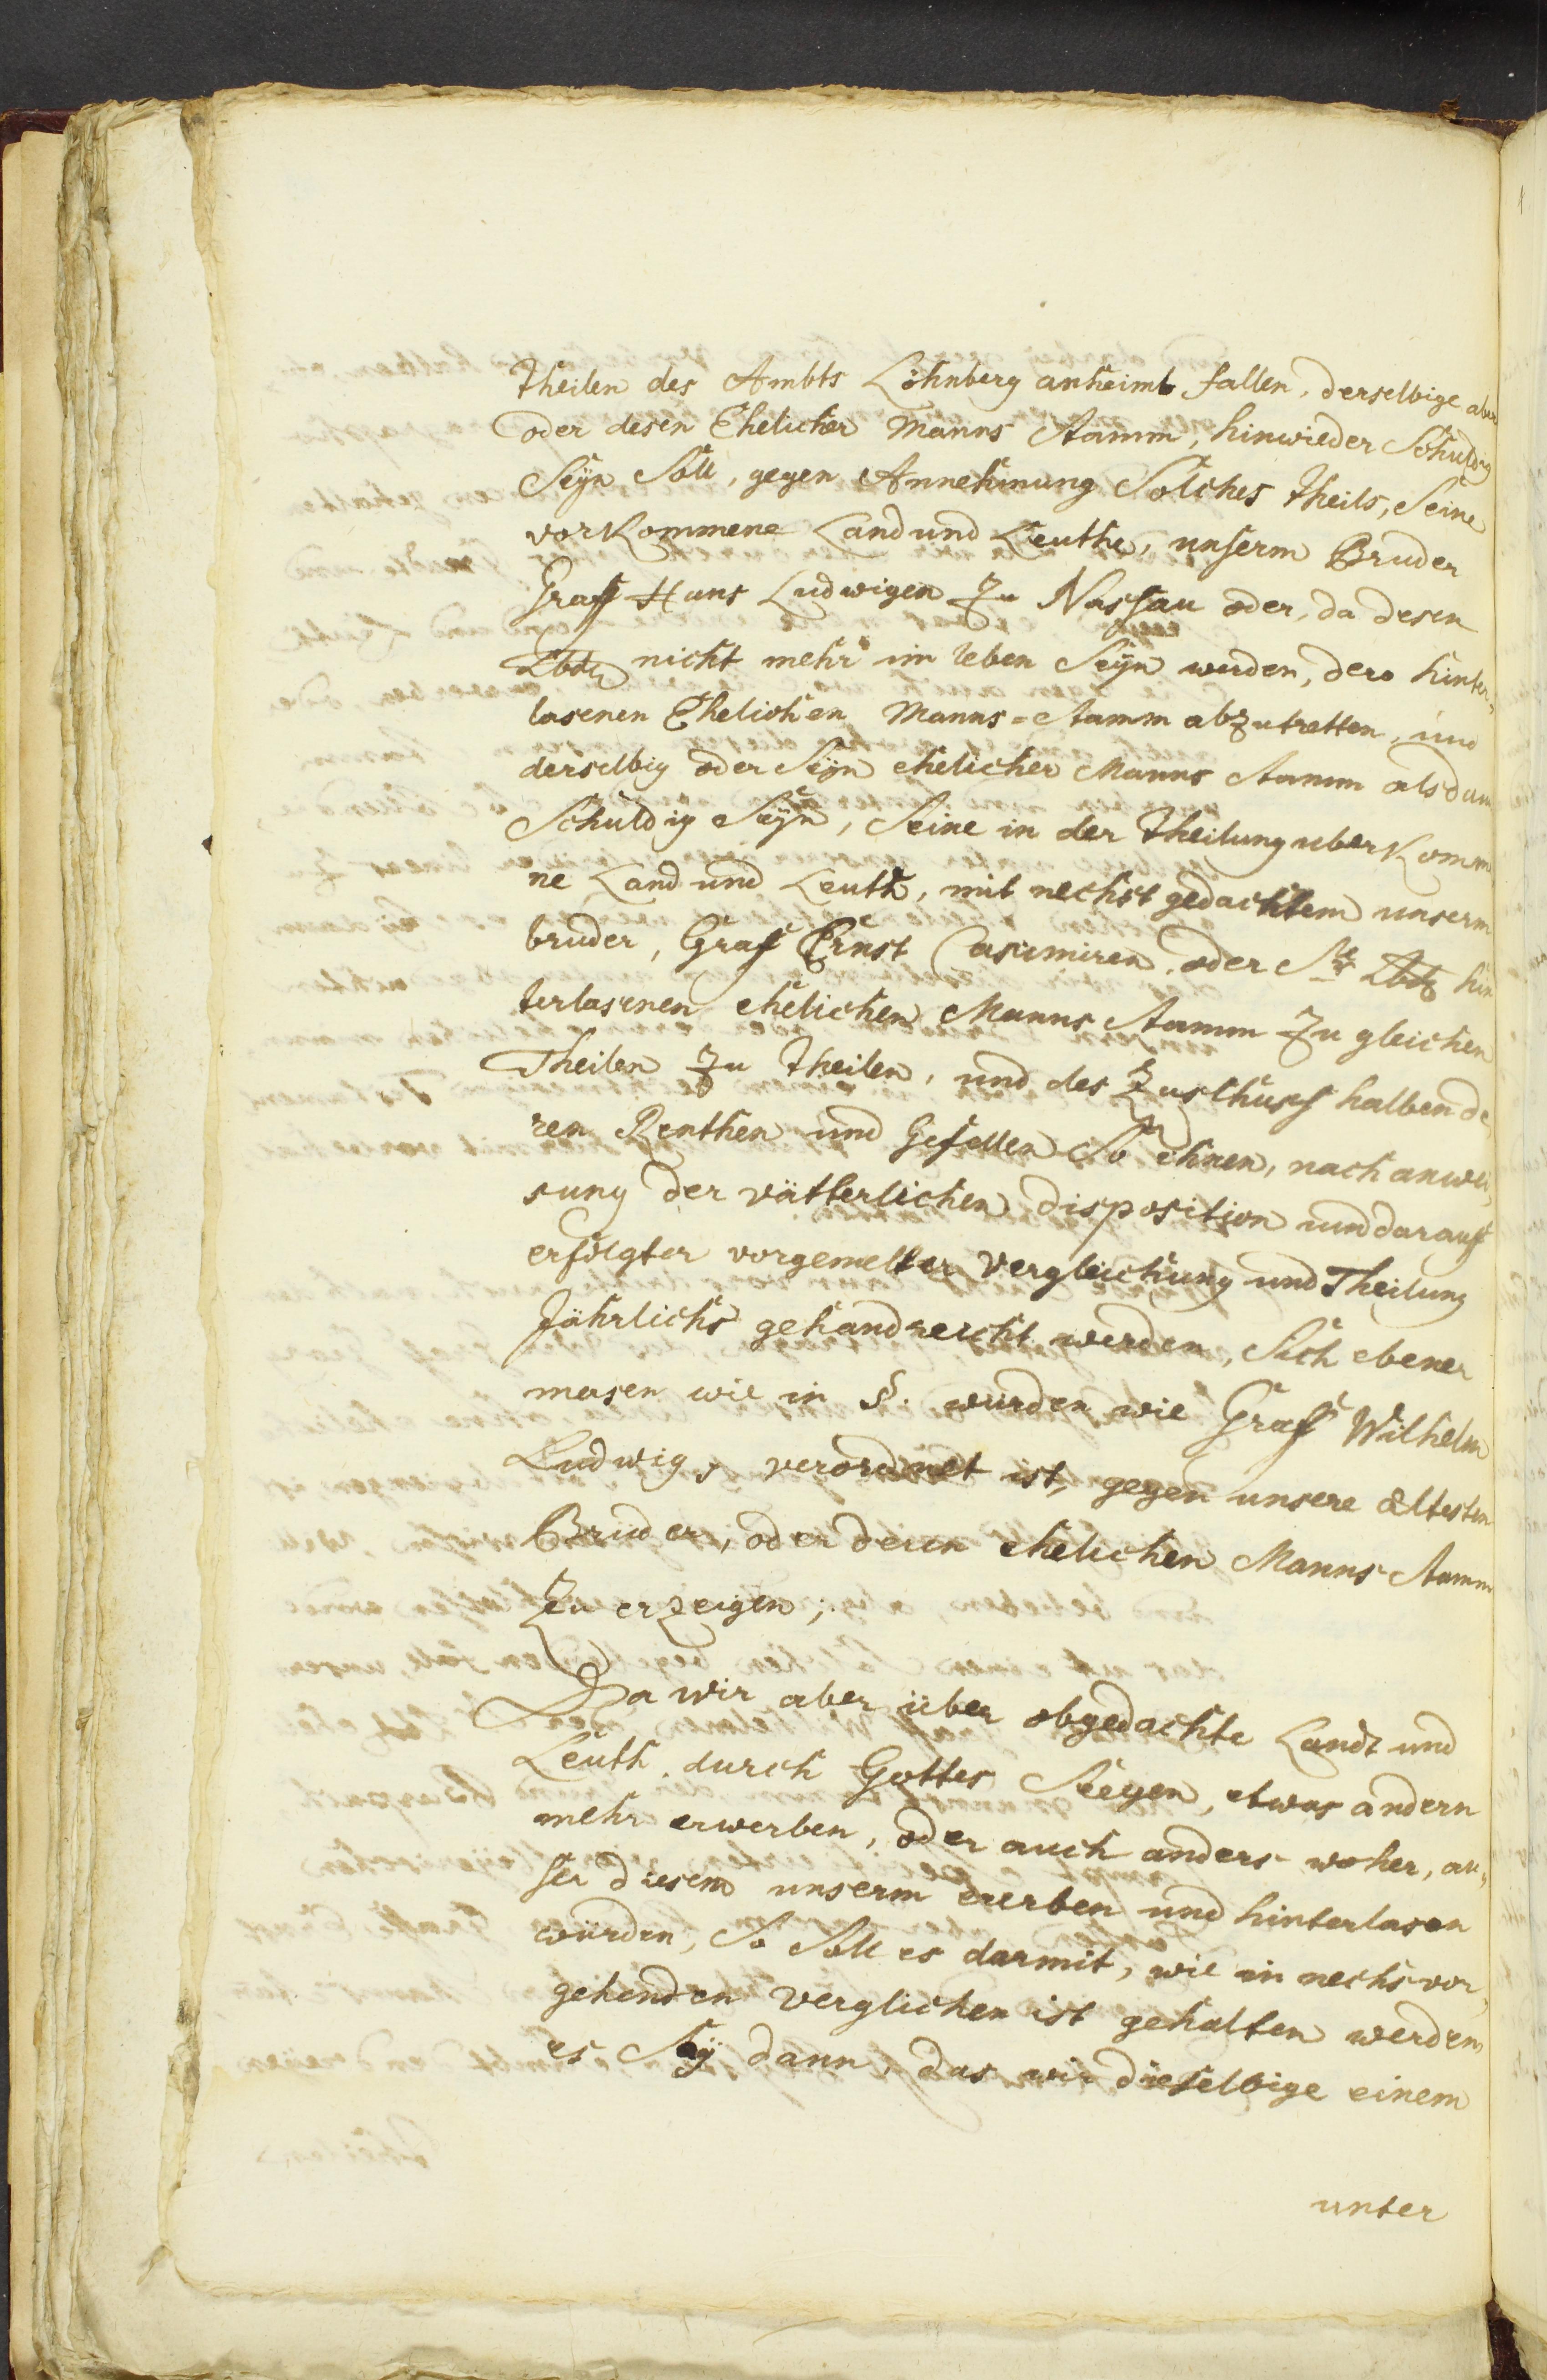 theilen des Ambts Löhnberg anheimb fallen, derselbige aber
oder desen Ehelicher Manns Stamm, hinwieder Schuldig
Seyn Soll, gegen Annehmung Solches theils, Seine
vorkommene Land und Leuthe, unserm Bruder
Graff Hans Ludwigen Zu Nassau oder, da desen
Lbdn nicht mehr im leben Seyn werden, dero hinter,
lasenen Ehelichen Manns=Stamm abzutretten, und
derselbig oder Seyn ehelicher Manns Stamm alsdann
Schuldig Seyn, Seine in der theilung uberkomm
ne Land und Leuth, mit nechst gedachtem unserm
bruder, Graf Ernst Casimiren, oder Sr Lbdn hin
terlasenen ehelichen Manns Stamm Zu gleichen
Theilen Zu theilen, und des Zuschuss halben de,
ren Renthen und Gefellen So ihnen, nach anwei,
sung der vätterlichen disposition und darauf
erfolgter vorgemelter Vergleichung und Theilung
Jährlichs gehandreicht werden, Sich ebener
masen wie in §. wurden wie Graf Wilhelm
Ludwig, verordnet ist, gegen unsere ältesten
Brüder, oder deren ehelichen Manns-Stamm
Zu erzeigen;
Da wir aber über obgedachte Landt und
Leuth durch Gottes Seegen, etwas andern
mehr erwerben, oder auch anders woher, au,
ser diesem unserm ererben und hinterlasen
würden, So Soll es darmit, wie in nechsvor,
gehenden verglichen ist gehalten werden,
es Sey dann, das wir dieselbige einem
unter